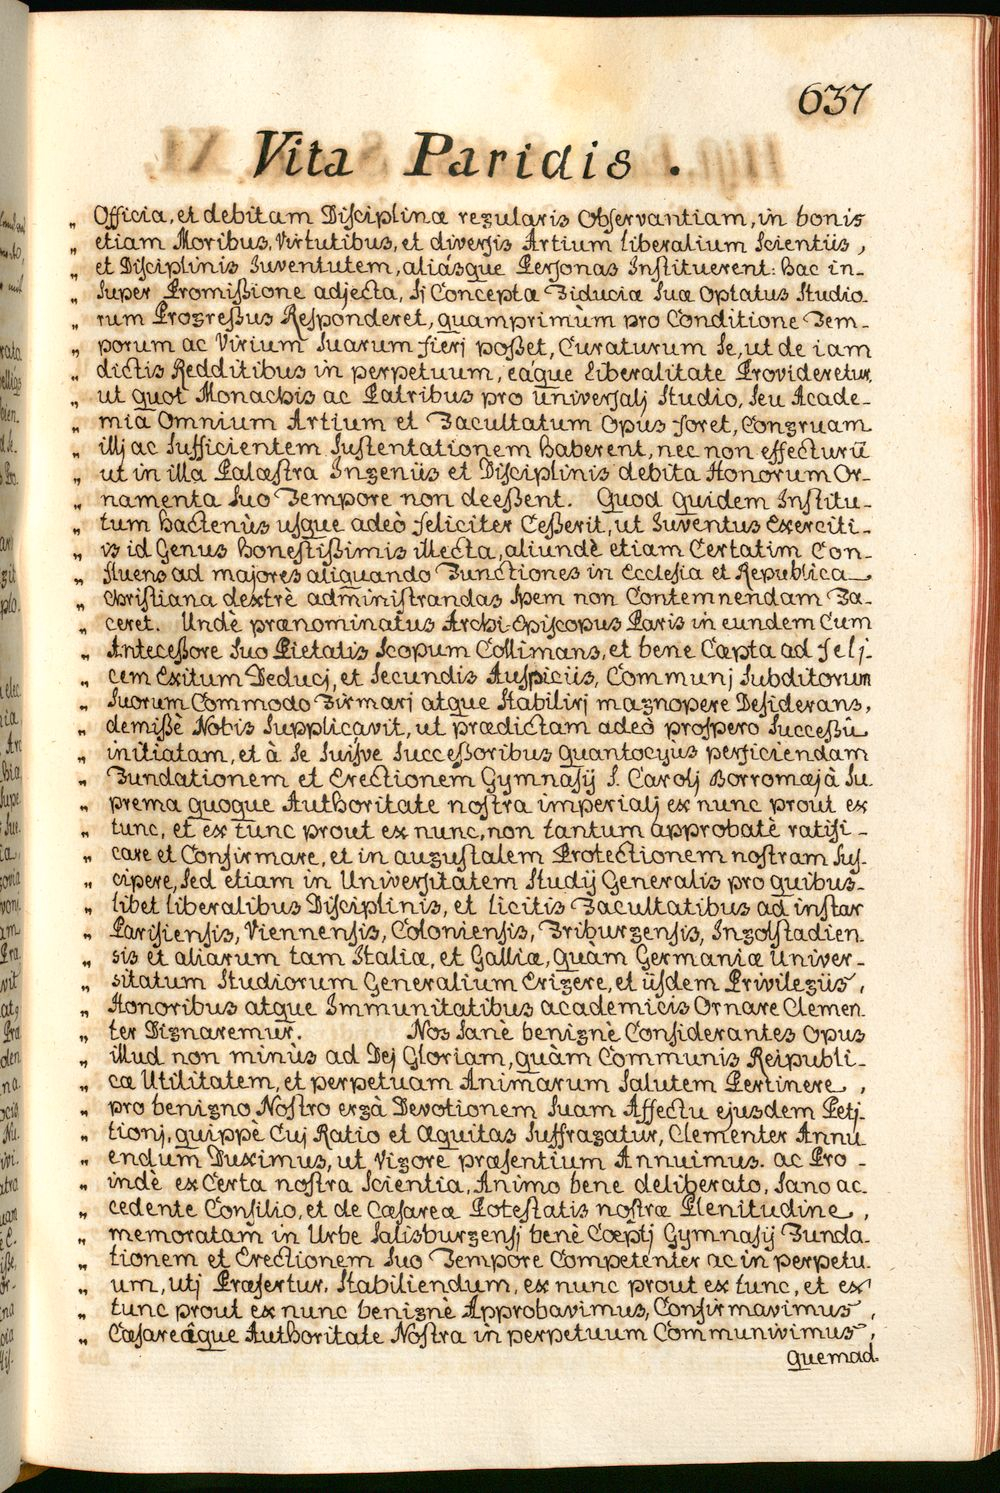 637
Vita Paridis .
„ Officia, et debitam Disciplinæ regularis Observantiam, in bonis
„ etiam Moribus, Virtutibus, et diversis Artium liberalium Scientiis,
„ et Disciplinis Iuventutem, aliásque Personas Instituerent: hac in-
„ super Promissione adjecta, si Conceptæ Fiduciæ suæ optatus studio-
„ rum Progressus Responderet, quamprimùm pro Conditione Tem-
„ porum ac Virium suarum fierj posset, Curaturum se, ut de iam
„ dictis Redditibus in perpetuum, eáque Liberalitate Provideretur,
„ ut quot Monachis ac Patribus pro universalj Studio, seu Acade-
„ miâ Omnium Artium et Facultatum Opus foret, Congruam
„ illj ac sufficientem sustentationem haberent, nec non effecturũ
„ ut in illa Palæstra Ingeniis et Disciplinis debita Honorum Or-
„ namenta suo Tempore non deessent. Quod quidem Institu-
„ tum hactenùs usque adeò feliciter Cesserit, ut Iuventus Exerciti-
„ is id Genus honestissimis illecta, aliundè etiam Certatim Con-
„ fluens ad majores aliquando Functiones in Ecclesia et Republica
„ Christiana dextrè administrandas spem non Contemnendam Fa-
„ ceret. Undè prænominatus Archi-Episcopus Paris in eundem Cum
„ Antecessore suo Pietatis scopum Collimans, et bene Cœpta ad felj-
„ cem Exitum Deducj, et secundis Auspiciis, Communj Subditorum
„ suorum Commodo Firmarj atque stabilirj magnopere Desiderans,
„ demissè Nobis supplicavit, ut prædictam adeò prospero Successû
„ initiatam, et à se suisve Successoribus quantocyus perficiendam
„ Fundationem et Erectionem Gymnasij S. Carolj Borromæjà su-
„ prema quoque Authoritate nostra imperialj ex nunc prout ex
„ tunc, et ex tunc prout ex nunc, non tantum approbatè ratifi-
„ care et Confirmare, et in augustalem Protectionem nostram sus-
„ cipere, sed etiam in Universitatem Studij Generalis pro quibus-
„ libet liberalibus Disciplinis, et licitis Facultatibus ad instar
„ Parisiensis, Viennensis, Coloniensis, Friburgensis, Ingolstadien-
„ sis et aliarum tam Italiæ, et Galliæ, quàm Germaniæ Univer-
„ sitatum Studiorum Generalium Erigere, et iisdem Privilegiis,
„ Honoribus atque Immunitatibus academicis Ornare Clemen
„ ter Dignaremur. Nos sanè benignè Considerantes opus
„ illud non minùs ad Dej Gloriam, quàm Communis Reipubli-
„ cæ Utilitatem, et perpetuam Animarum salutem Pertinere,
„ pro benigno Nostro ergà Devotionem suam Affectu ejusdem Petj-
„ tionj, quippè Cuj Ratio et Æquitas suffragatur, Clementer Annu
„ endum Duximus, ut Vigore præsentium Annuimus. ac Pro-
„ indè ex Certa nostra Scientia, Animo bene deliberato, sano ac-
„ cedente Consilio, et de Cæsareæ Potestatis nostræ Plenitudine,
„ memoratam in Urbe Salisburgensj benè Cœptj Gymnasij Funda-
„ tionem et Erectionem suo Tempore Competenter ac in perpetu-
„ um, utj Præfertur, stabiliendum, ex nunc prout ex tunc, et ex
„ tunc prout ex nunc benignè Approbavimus, Confirmavimus,
„ Cæsareâque Authoritate Nostra in perpetuum Communivimus,
quemad.